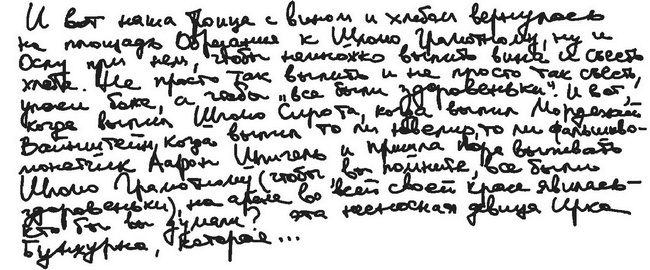 И вот наша троица с вином и хлебом вернулась
на площадь Обрезания к Шломо Грамотному, ну и
Ослу при нем, чтобы немножко выпить вина и съесть
хлеба. Не просто так выпить и не просто так съесть,
упаси боже, а чтобы „все были здоровеньки“. И вот,
когда выпил Шломо Сирота, когда выпил Мордехай
Вайнштейн, когда выпил то ли ювелир, то ли фальшиво-
монетчик Аарон Шпигель и пришла пора выпивать
Шломо Грамотному (чтобы, вы помните, все были
здоровеньки), на арене во всей своей красе явилась –
кто бы вы думали? эта несносная девица Ирка
Бунжурна, которая...